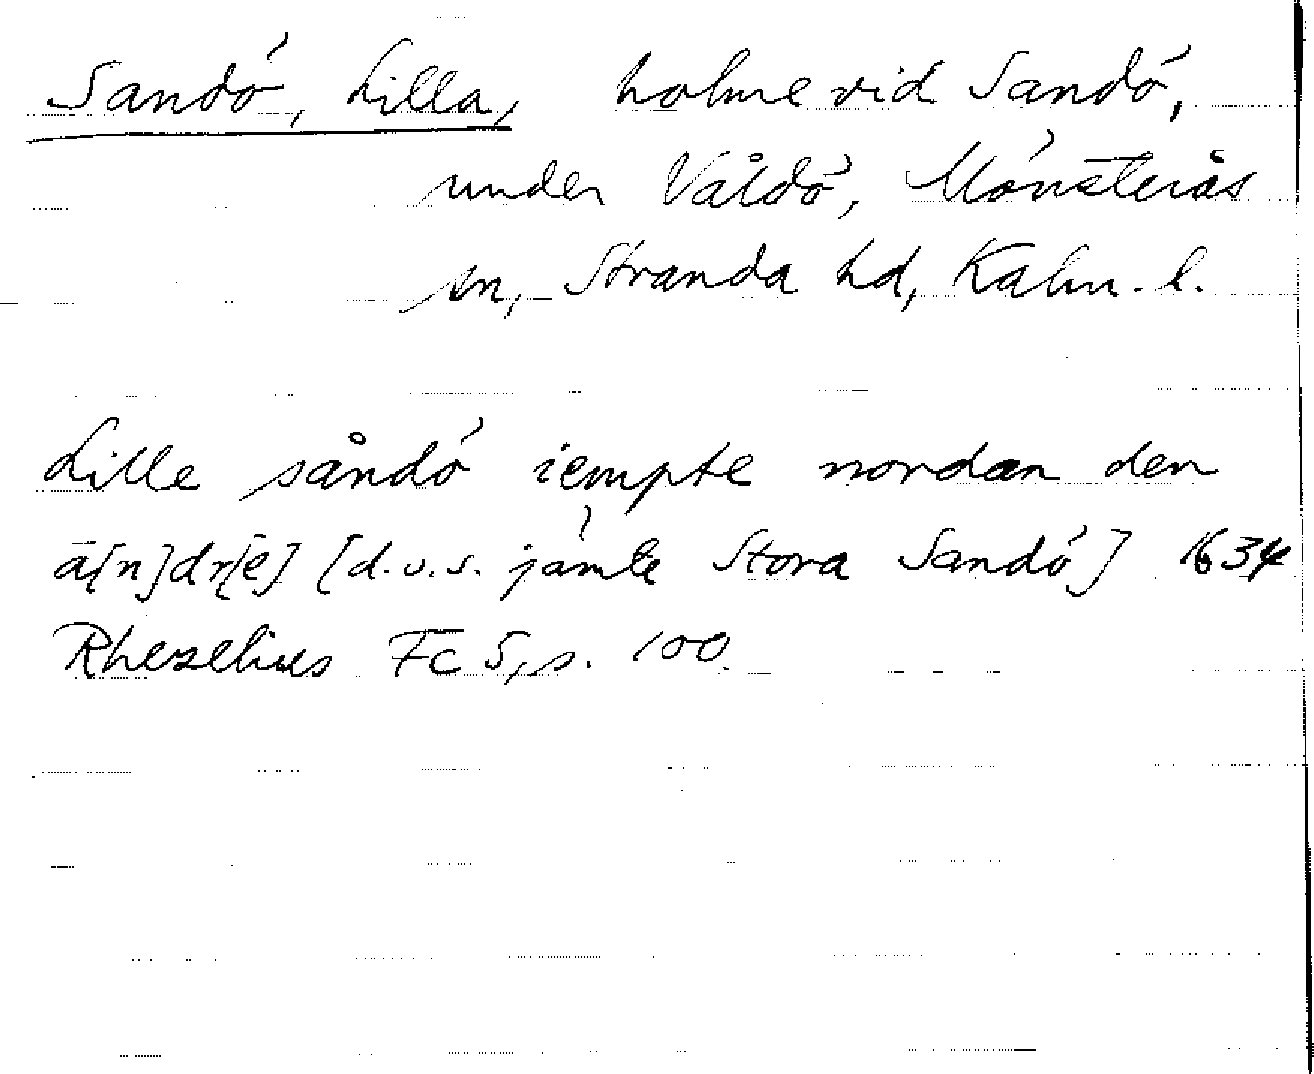 Sandö, Lilla, holme vid Sandö,
under Vållö, Mönsterås
sn, Stranda hd, Kalm. l.
Lille såndö iempte nordan den
a[n]dr[e] [d.v.s. jämte Stora Sandö] 1634
Rhezelius Fc 5, s. 100.